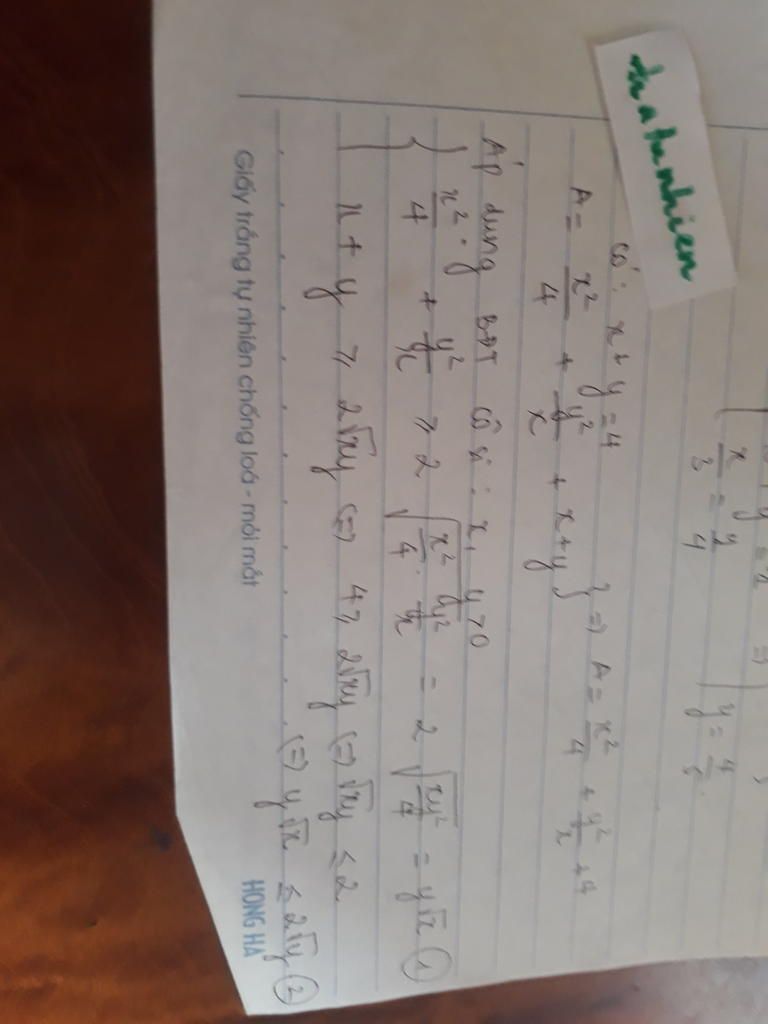 tuatunhien
x/3 = y/4
y = 4/
có: x + y = 4
A = x²/4 + y²/x + x+y } => A = x²/4 + y²/x + 4
Áp dụng BĐT Cô si: x, y > 0
x²/4 + y²/x ≥ 2√(x²/4 · y²/x) = 2√(xy²/4) = y√x ①
x + y ≥ 2√xy <=> 4 ≥ 2√xy <=> √xy ≤ 2
<=> y√x ≤ 2√y ②
Giấy trắng tự nhiên chống loá - mỏi mắt
HONG HA